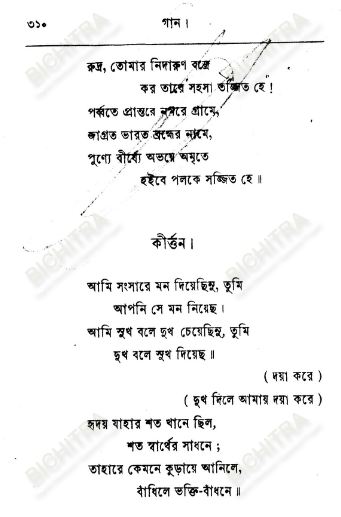 ৩১০
গান।
রুদ্র, তোমার নিদারুণ বজ্রে
কর তারে সহসা তর্জ্জিত হে!
পর্ব্বতে প্রান্তরে নগরে গ্রামে,
জাগ্রত ভারত ব্রহ্মের নামে,
পুণ্যে বীর্য্যে অভয়ে অমৃতে
হইবে পলকে সজ্জিত হে॥
কীর্ত্তন।
আমি সংসারে মন দিয়েছিনু, তুমি
আপনি সে মন নিয়েছ।
আমি সুখ বলে দুখ চেয়েছিনু, তুমি
দুখ বলে সুখ দিয়েছ॥
( দয়া করে )
( দুখ দিলে আমায় দয়া করে )
হৃদয় যাহার শত খানে ছিল,
শত স্বার্থের সাধনে;
তাহারে কেমনে কুড়ায়ে আনিলে,
বাঁধিলে ভক্তি-বাঁধনে॥
BICHITRA
BICHITRA
BICHITRA
BICHITRA
BICHITRA
BICHITRA